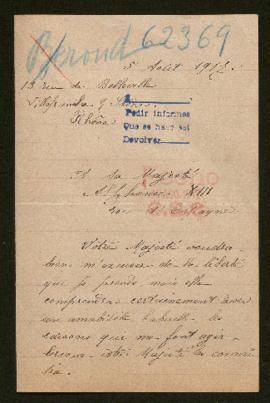 Beroud 62369
5 Août 1917
13 rue de Belleville
Villefranche s/ Saône
Rhône
A
Pedir informes
Que se haga así
Devolver
A Sa Majesté
Alphonse XIII
Roi d'Espagne
Votre Majesté voudra
bien m'excuser de la liberté
que je prends mais elle
comprendra certainement avec
son amabilité habituelle les
raisons que me font agir
lorsque votre Majesté les connaî-
tra.